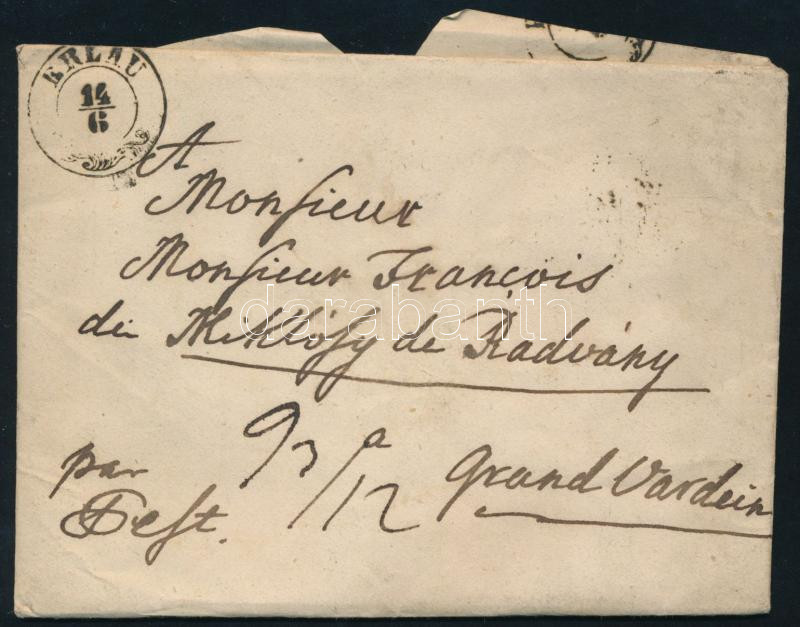 ERLAU
14
6
A
Monsieur
Monsieur François
de Miklósy de Radvány
darabanth
par
Pest.
Grand Vardein